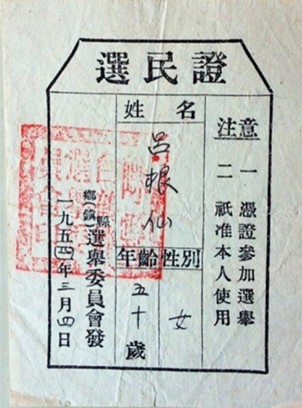 選民證
注意
一 憑證參加選舉
二 祇准本人使用
姓名
呂根仙
性別
女
年齡
五十歲
縣
鄉(鎮)選舉委員會發
一九五四年三月四日